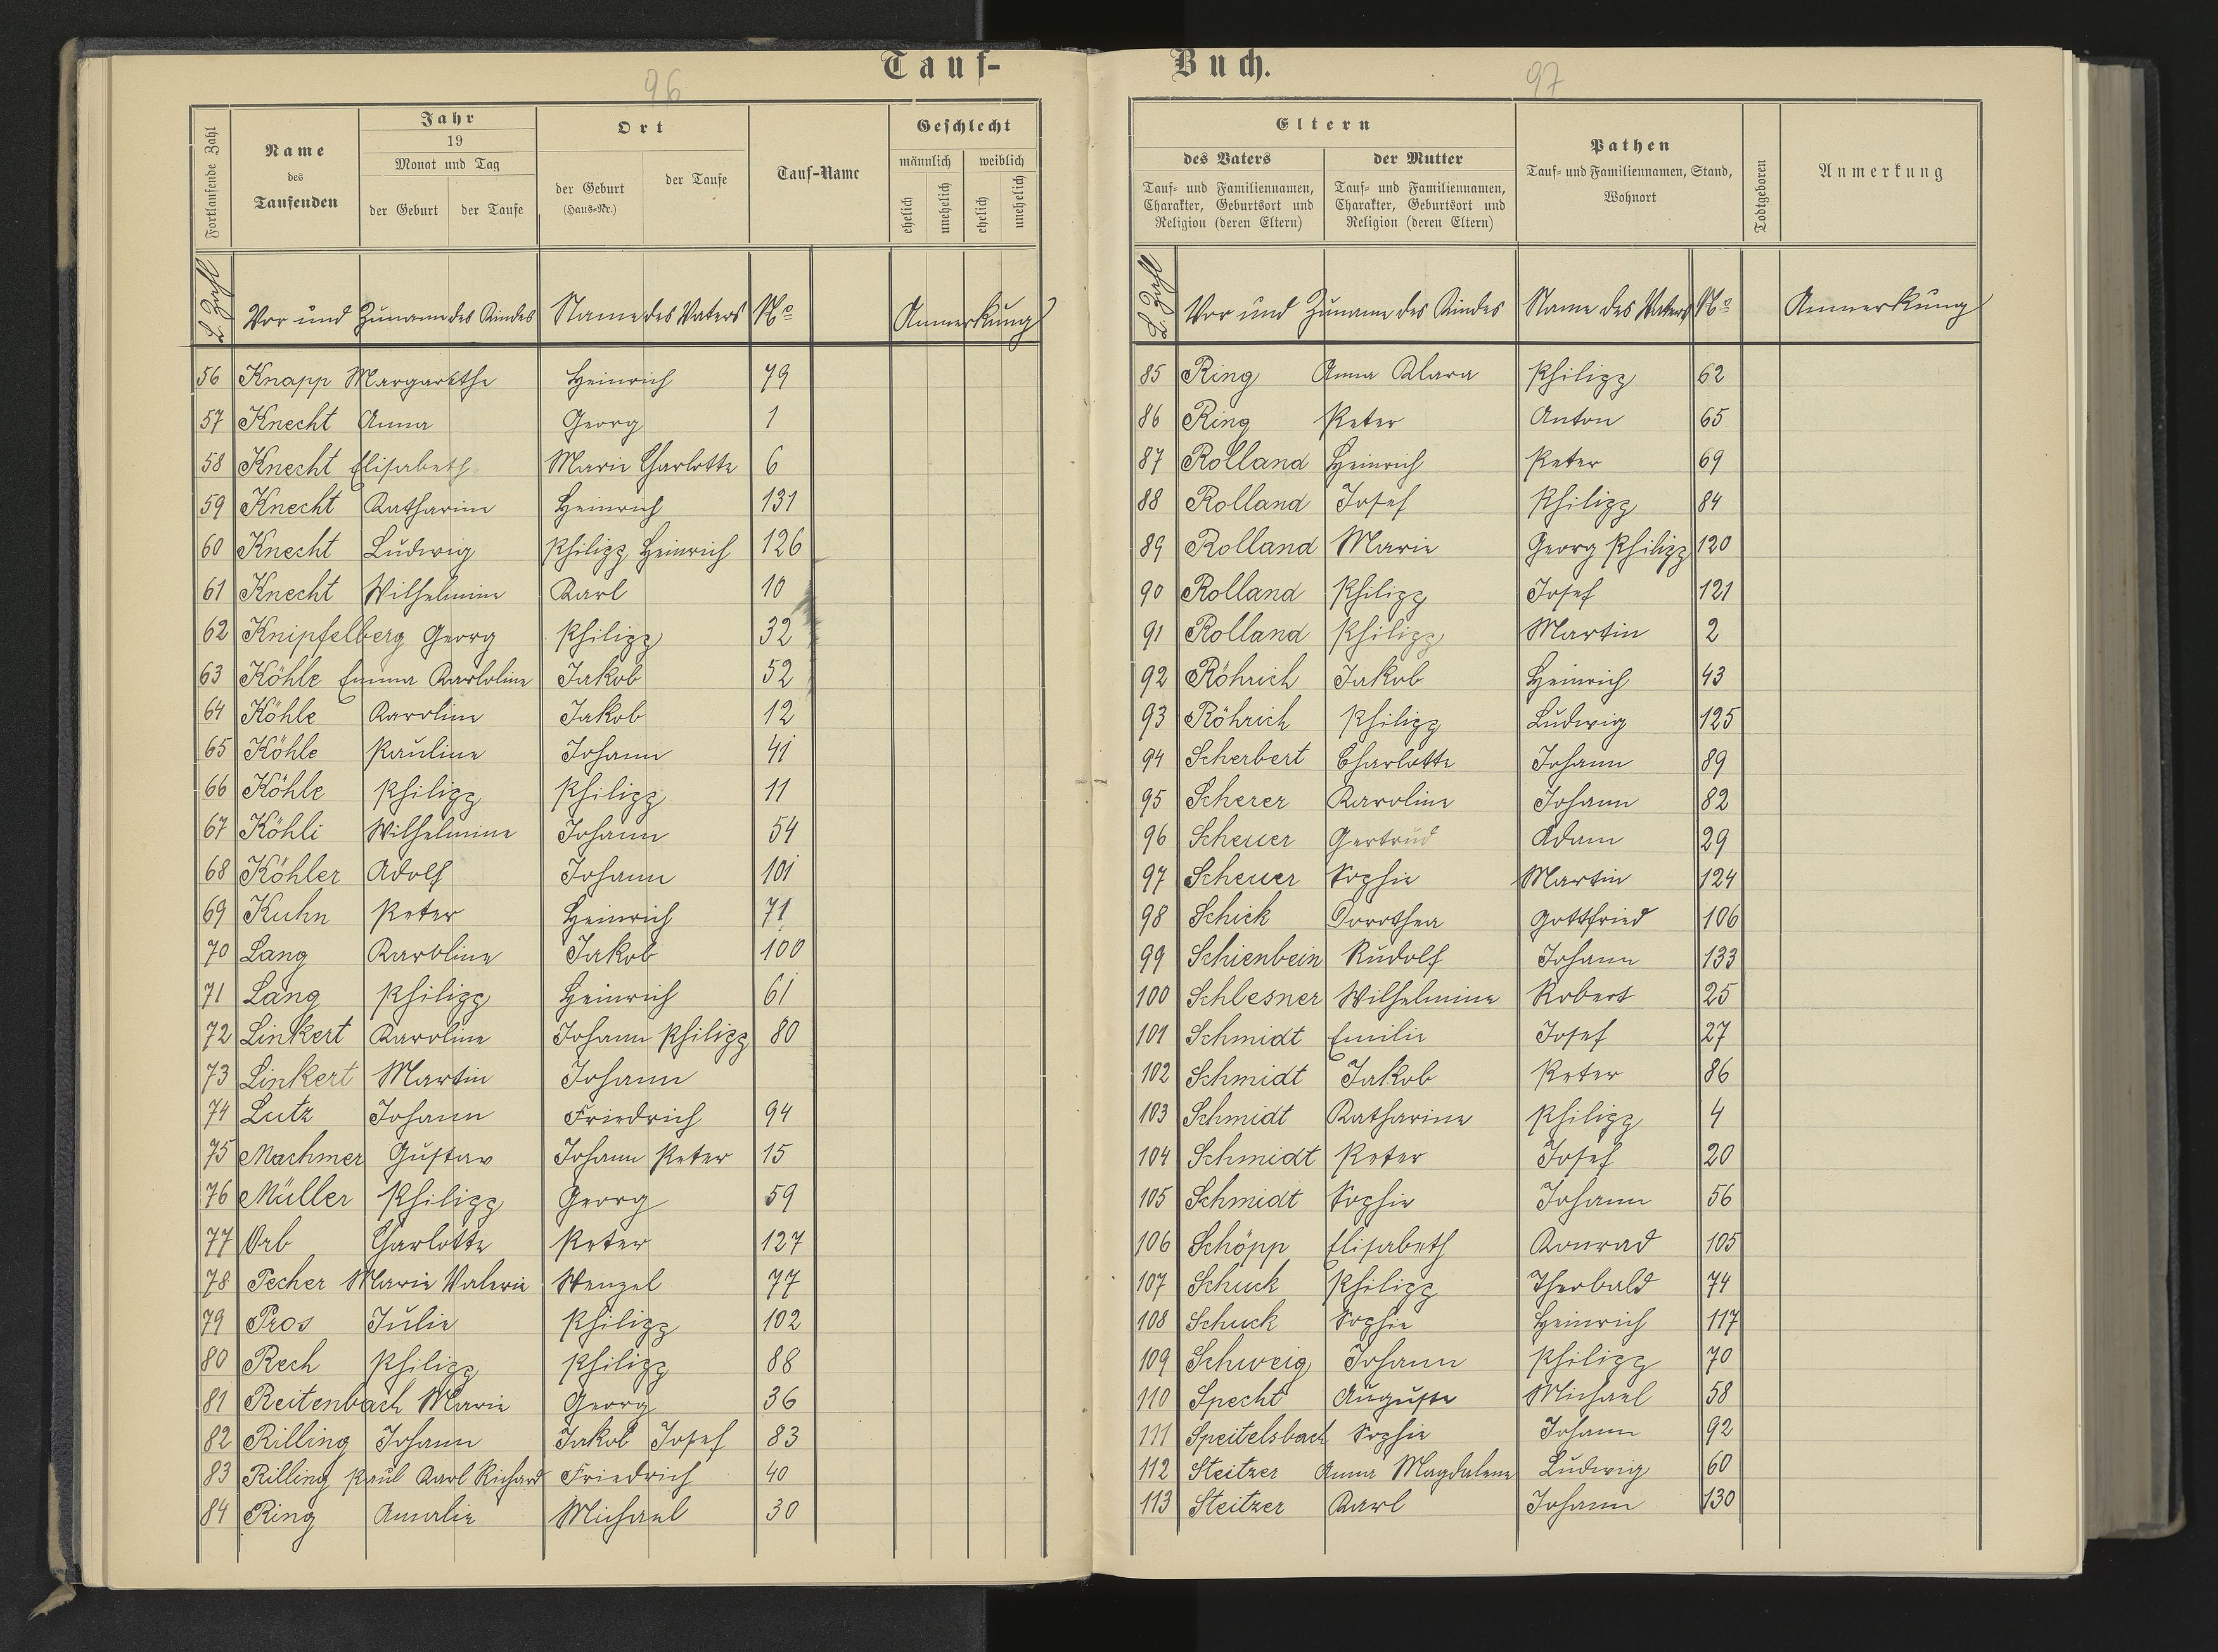 Tauf-
96
Fortlaufende Zahl
Name
des
Taufenden
Jahr
19
Monat und Tag
der Geburt
der Taufe
Ort
der Geburt
(Haus-Nr.)
der Taufe
Tauf-Name
Geschlecht
männlich
weiblich
ehelich
unehelich
ehelich
unehelich
L. Zahl Vor und Zuname des Kindes Name des Vaters No Anmerkung
56 Knapp Margarethe Heinrich 79
57 Knecht Anna Georg 1
58 Knecht Elisabeth Marie Charlotte 6
59 Knecht Katharine Heinrich 131
60 Knecht Ludwig Philipp Heinrich 126
61 Knecht Wilhelmine Karl 10
62 Knipfelberg Georg Philipp 32
63 Köhle Emma Karloline Jakob 52
64 Köhle Karoline Jakob 12
65 Köhle Pauline Johann 41
66 Köhle Philipp Philipp 11
67 Köhli Wilhelmine Johann 54
68 Köhler Adolf Johann 101
69 Kuhn Peter Heinrich 71
70 Lang Karoline Jakob 100
71 Lang Philipp Heinrich 61
72 Linkert Karoline Johann Philipp 80
73 Linkert Martin Johann
74 Lutz Johann Friedrich 94
75 Machmer Gustav Johann Peter 15
76 Müller Philipp Georg 59
77 Orb Charlotte Peter 127
78 Pecher Marie Valerie Wenzel 77
79 Pros Julie Philipp 102
80 Rech Philipp Philipp 88
81 Reitenbach Marie Georg 36
82 Rilling Johann Jakob Josef 83
83 Rilling Paul Karl Richard Friedrich 40
84 Ring Amalie Michael 30
Buch.
97
Eltern
des Vaters
Tauf- und Familiennamen,
Charakter, Geburtsort und
Religion (deren Eltern)
der Mutter
Tauf- und Familiennamen,
Charakter, Geburtsort und
Religion (deren Eltern)
Pathen
Tauf- und Familiennamen, Stand,
Wohnort
Todtgeboren
Anmerkung
L. Zahl Vor und Zuname des Kindes Name des Vaters No Anmerkung
85 Ring Anna Klara Philipp 62
86 Ring Peter Anton 65
87 Rolland Heinrich Peter 69
88 Rolland Josef Philipp 84
89 Rolland Marie Georg Philipp 120
90 Rolland Philipp Josef 121
91 Rolland Philipp Martin 2
92 Röhrich Jakob Heinrich 43
93 Röhrich Philipp Ludwig 125
94 Scherbert Charlotte Johann 89
95 Scherer Karoline Johann 82
96 Scheuer Gertrud Adam 29
97 Scheuer Sophie Martin 124
98 Schick Dorothea Gottfried 106
99 Schienbein Rudolf Johann 133
100 Schlesner Wilhelmine Robert 25
101 Schmidt Emilie Josef 27
102 Schmidt Jakob Peter 86
103 Schmidt Katharine Philipp 4
104 Schmidt Peter Josef 20
105 Schmidt Sophie Johann 56
106 Schöpp Elisabeth Konrad 105
107 Schuck Philipp Theobald 74
108 Schuck Sophie Heinrich 117
109 Schweig Johann Philipp 70
110 Specht Auguste Michael 58
111 Speitelsbach Sophie Johann 92
112 Steitzer Anna Magdalena Ludwig 60
113 Steitzer Karl Johann 130